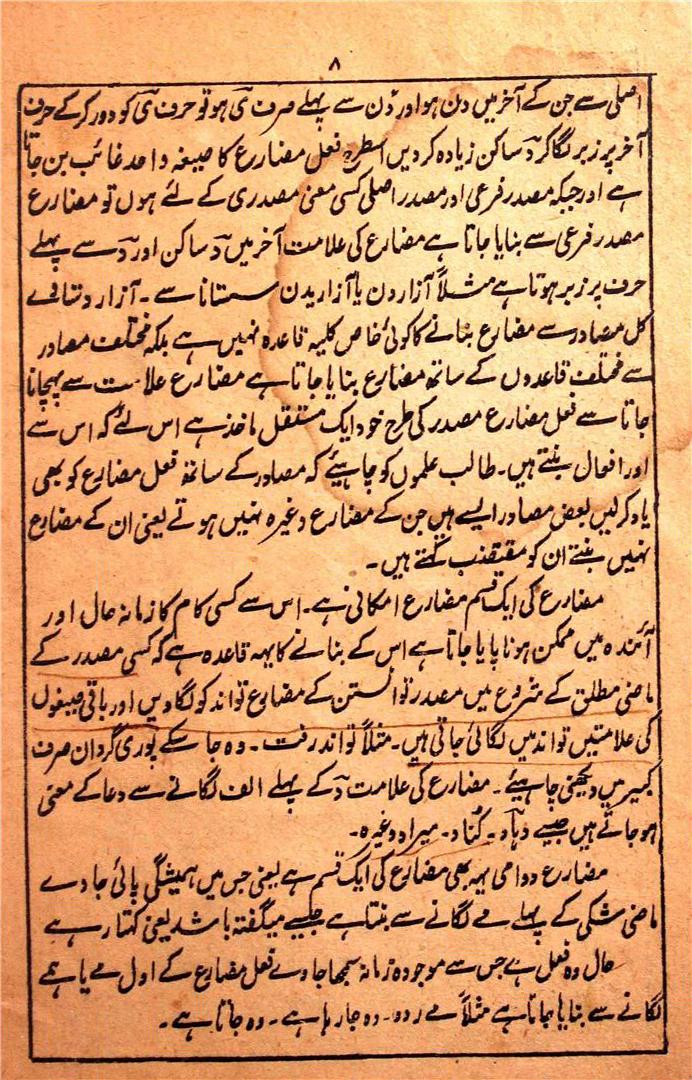 ۸
اصلی سے جن کے آخر میں دن ہو اور دن سے پہلے صرف ی ہو تو حرف ی کو دور کر کے حرف
آخر پر زبر لگا کر د ساکن زیادہ کر دیں اسطرح فعل مضارع کا صیغہ واحد غائب بن جاتا
ہے اور جبکہ مصدر فرعی اور مصدر اصلی کسی معنی مصدری کے لئے ہوں تو مضارع
مصدر فرعی سے بنایا جاتا ہے مضارع کی علامت آخر میں د ساکن اور د سے پہلے
حرف پر زبر ہوتا ہے مثلاً آزاردن یا آزاریدن ستانا سے ۔ آزارد ستاوے
کل مصادر سے مضارع بنانے کا کوئی خاص کلیہ قاعدہ نہیں ہے بلکہ مختلف مصادر
سے مختلف قاعدوں کے ساتھ مضارع بنایا جاتا ہے مضارع علامت سے پہچانا
جاتا ہے فعل مضارع مصدر کی طرح خود ایک مستقل ماخذ ہے اس لئے کہ اس سے
اور افعال بنتے ہیں ۔ طالب علموں کو چاہیئے کہ مصادر کے ساتھ فعل مضارع کو بھی
یاد کر لیں بعض مصادر ایسے ہیں جن کے مضارع وغیرہ نہیں ہوتے یعنی ان کے مضارع
نہیں بنتے ان کو مقتضب کہتے ہیں ۔
مضارع کی ایک قسم مضارع امکانی ہے ۔ اس سے کسی کام کا زمانہ حال اور
آئندہ میں ممکن ہونا پایا جاتا ہے اس کے بنانے کا یہہ قاعدہ ہے کہ کسی مصدر کے
ماضی مطلق کے شروع میں مصدر توانستن کے مضارع تواند کو لگا دیں اور باقی صیغوں
کی علامتیں تواند میں لگائی جاتی ہیں ۔ مثلاً تواند رفت ۔ وہ جا سکے پوری گردان صرف
کبیر میں دیکھنی چاہیئے ۔ مضارع کی علامت د کے پہلے الف لگانے سے دعا کے معنی
ہو جاتے ہیں جیسے دہاد ۔ کناد ۔ میراد وغیرہ ۔
مضارع دوامی یہہ بھی مضارع کی ایک قسم ہے یعنی جس میں ہمیشگی پائی جاوے
ماضی شکی کے پہلے مے لگانے سے بنتا ہے جیسے میگفتہ باشد یعنی کہتا رہے
حال وہ فعل ہے جس سے موجودہ زمانہ سمجھا جاوے فعل مضارع کے اول مے یا ہمے
لگانے سے بنایا جاتا ہے مثلاً مے رود ۔ وہ جا رہا ہے ۔ وہ جاتا ہے ۔